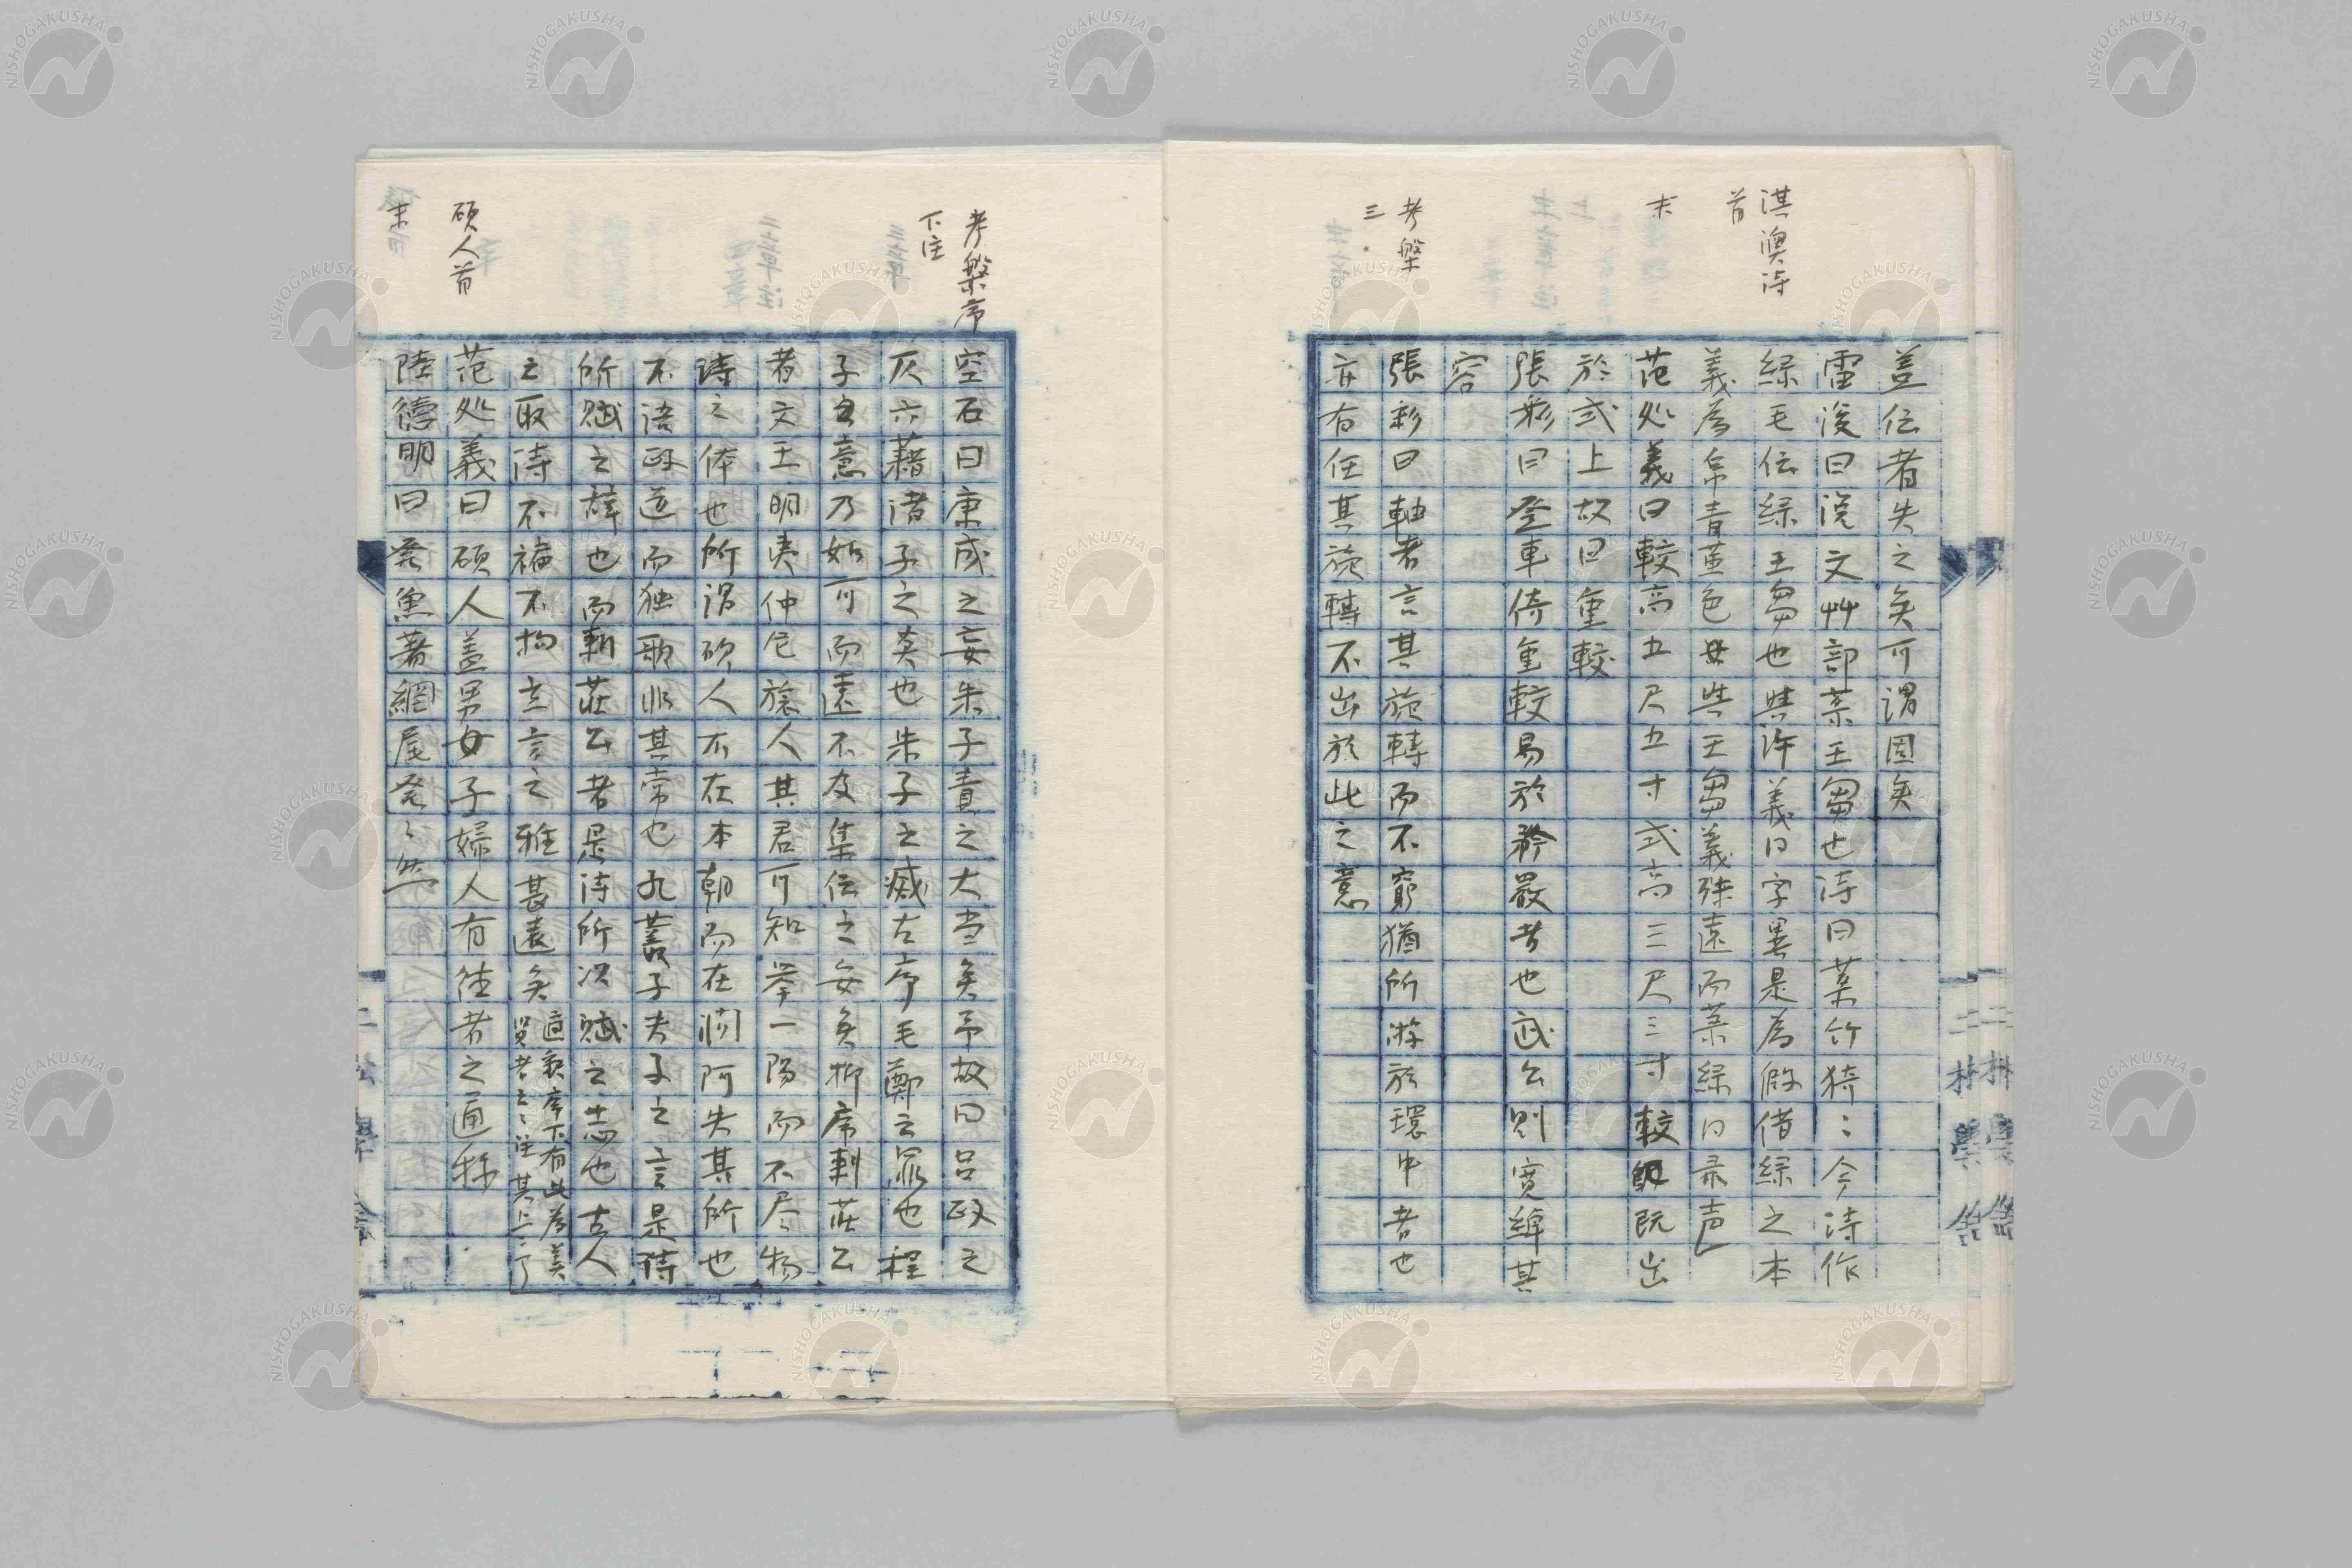 淇澳詩
首
末
考槃
三
蓋伝者失之矣可謂固矣
雷浚曰説文艸部菉王芻也詩曰菉竹猗〻今詩作
緑毛伝緑王芻也與許義同字異是為仮借緑之本
義為帛青黄色与王芻義殊遠而菉緑同彔声
范処義曰較高五尺五寸式高三尺三寸較既出
於式上故曰重較
張彩曰登車倚重較易於矜嚴者也武公則寛綽其
容
張彩曰軸者言其旋轉而不窮猶所游於環中者也
亦有任其旋轉不出於此之意
考槃序
下注
碩人首
末
空石曰康成之妄朱子責之大当矣予故曰呂政之
灰六藉諸子之災也朱子之滅古序毛鄭之罪也程
子自意乃如可而遠不及集伝之安矣抑序刺荘公
者文王明夷仲尼旅人其君可知挙一陽而不尽物
詩之体也所謂碩人不在本朝而在澗阿失其所也
不語政道而独歌此其常也孔叢子夫子之言是詩
所賦之辞也而刺荘公者是詩所次賦之志也古人
之取詩不褊不拘立言之雅甚遠矣
范処義曰碩人蓋男女子婦人有徳者之通称
陸徳明曰發魚著網尾發〻然